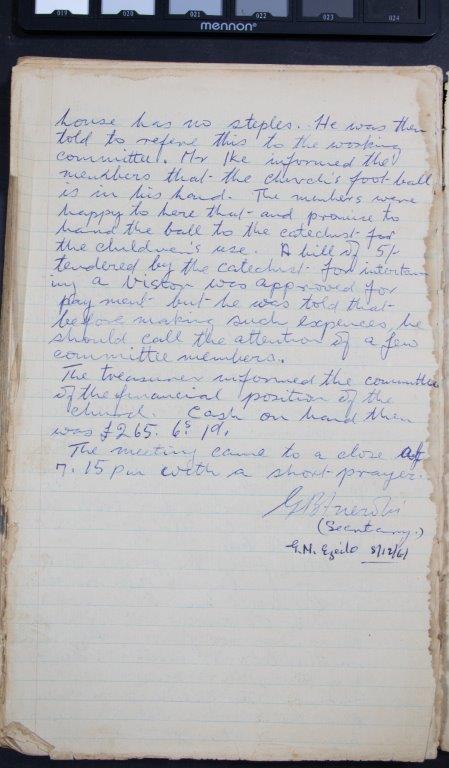 019 020 021 022 023 024
mennon
house has no steples. He was then
told to refere this to the working
committee. Mr Ike informed the
members that the church's foot ball
is in his hand. The members were
happy to here that and promise to
hand the ball to the catechist for
the children's use. A bill of 5/-
tendered by the catechist for intertain-
ing a visitor was approved for
payment but he was told that
before making such expences, he
should call the attention of a few
committee members.
The treasurer informed the committee
of the financial position of the
church. Cash on hand then
was £265. 6s 1d.
The meeting came to a close at
7.15 pm with a short prayer.
(Secretary.)
G.N. Ezeilo 8/12/61